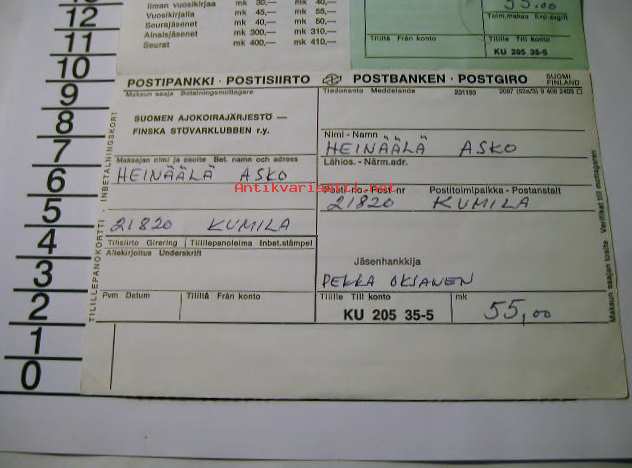 Ilman vuosikirjaa mk 30,— mk 40,—
Vuosikirjalla mk 45,— mk 55,—
Seurajäsenet mk 40,— mk 50,—
Ainaisjäsenet mk 300,— mk 310,—
Seurat mk 400,— mk 410,—
55,00
Toim.maksu Exp.avgift
Tililtä Från konto
KU 205 35-5
12
11
10
9
8
7
6
5
4
3
2
1
0
POSTIPANKKI · POSTISIIRTO POSTBANKEN · POSTGIRO SUOMI FINLAND
Maksun saaja Betalningsmottagare
Tiedonanto Meddelande 231193
SUOMEN AJOKOIRAJÄRJESTÖ —
FINSKA STÖVARKLUBBEN r.y.
Nimi - Namn
HEINÄÄLÄ ASKO
Maksajan nimi ja osoite Bet. namn och adress
Lähios. - Närm.adr.
HEINÄÄLÄ ASKO
Antikvariaari.net
Posti-no - Post-nr Postitoimipaikka - Postanstalt
21820 KUMILA
21820 KUMILA
Tilisiirto Girering Tilillepanoleima Inbet.stämpel
Allekirjoitus Underskrift
Jäsenhankkija
PEKKA OKSANEN
Pvm Datum Tililtä Från konto
Tilille Till konto mk
KU 205 35-5 55,00
TILILLEPANOKORTTI · INBETALNINGSKORT
Maksun saajan tosite Verifikat till mottagaren